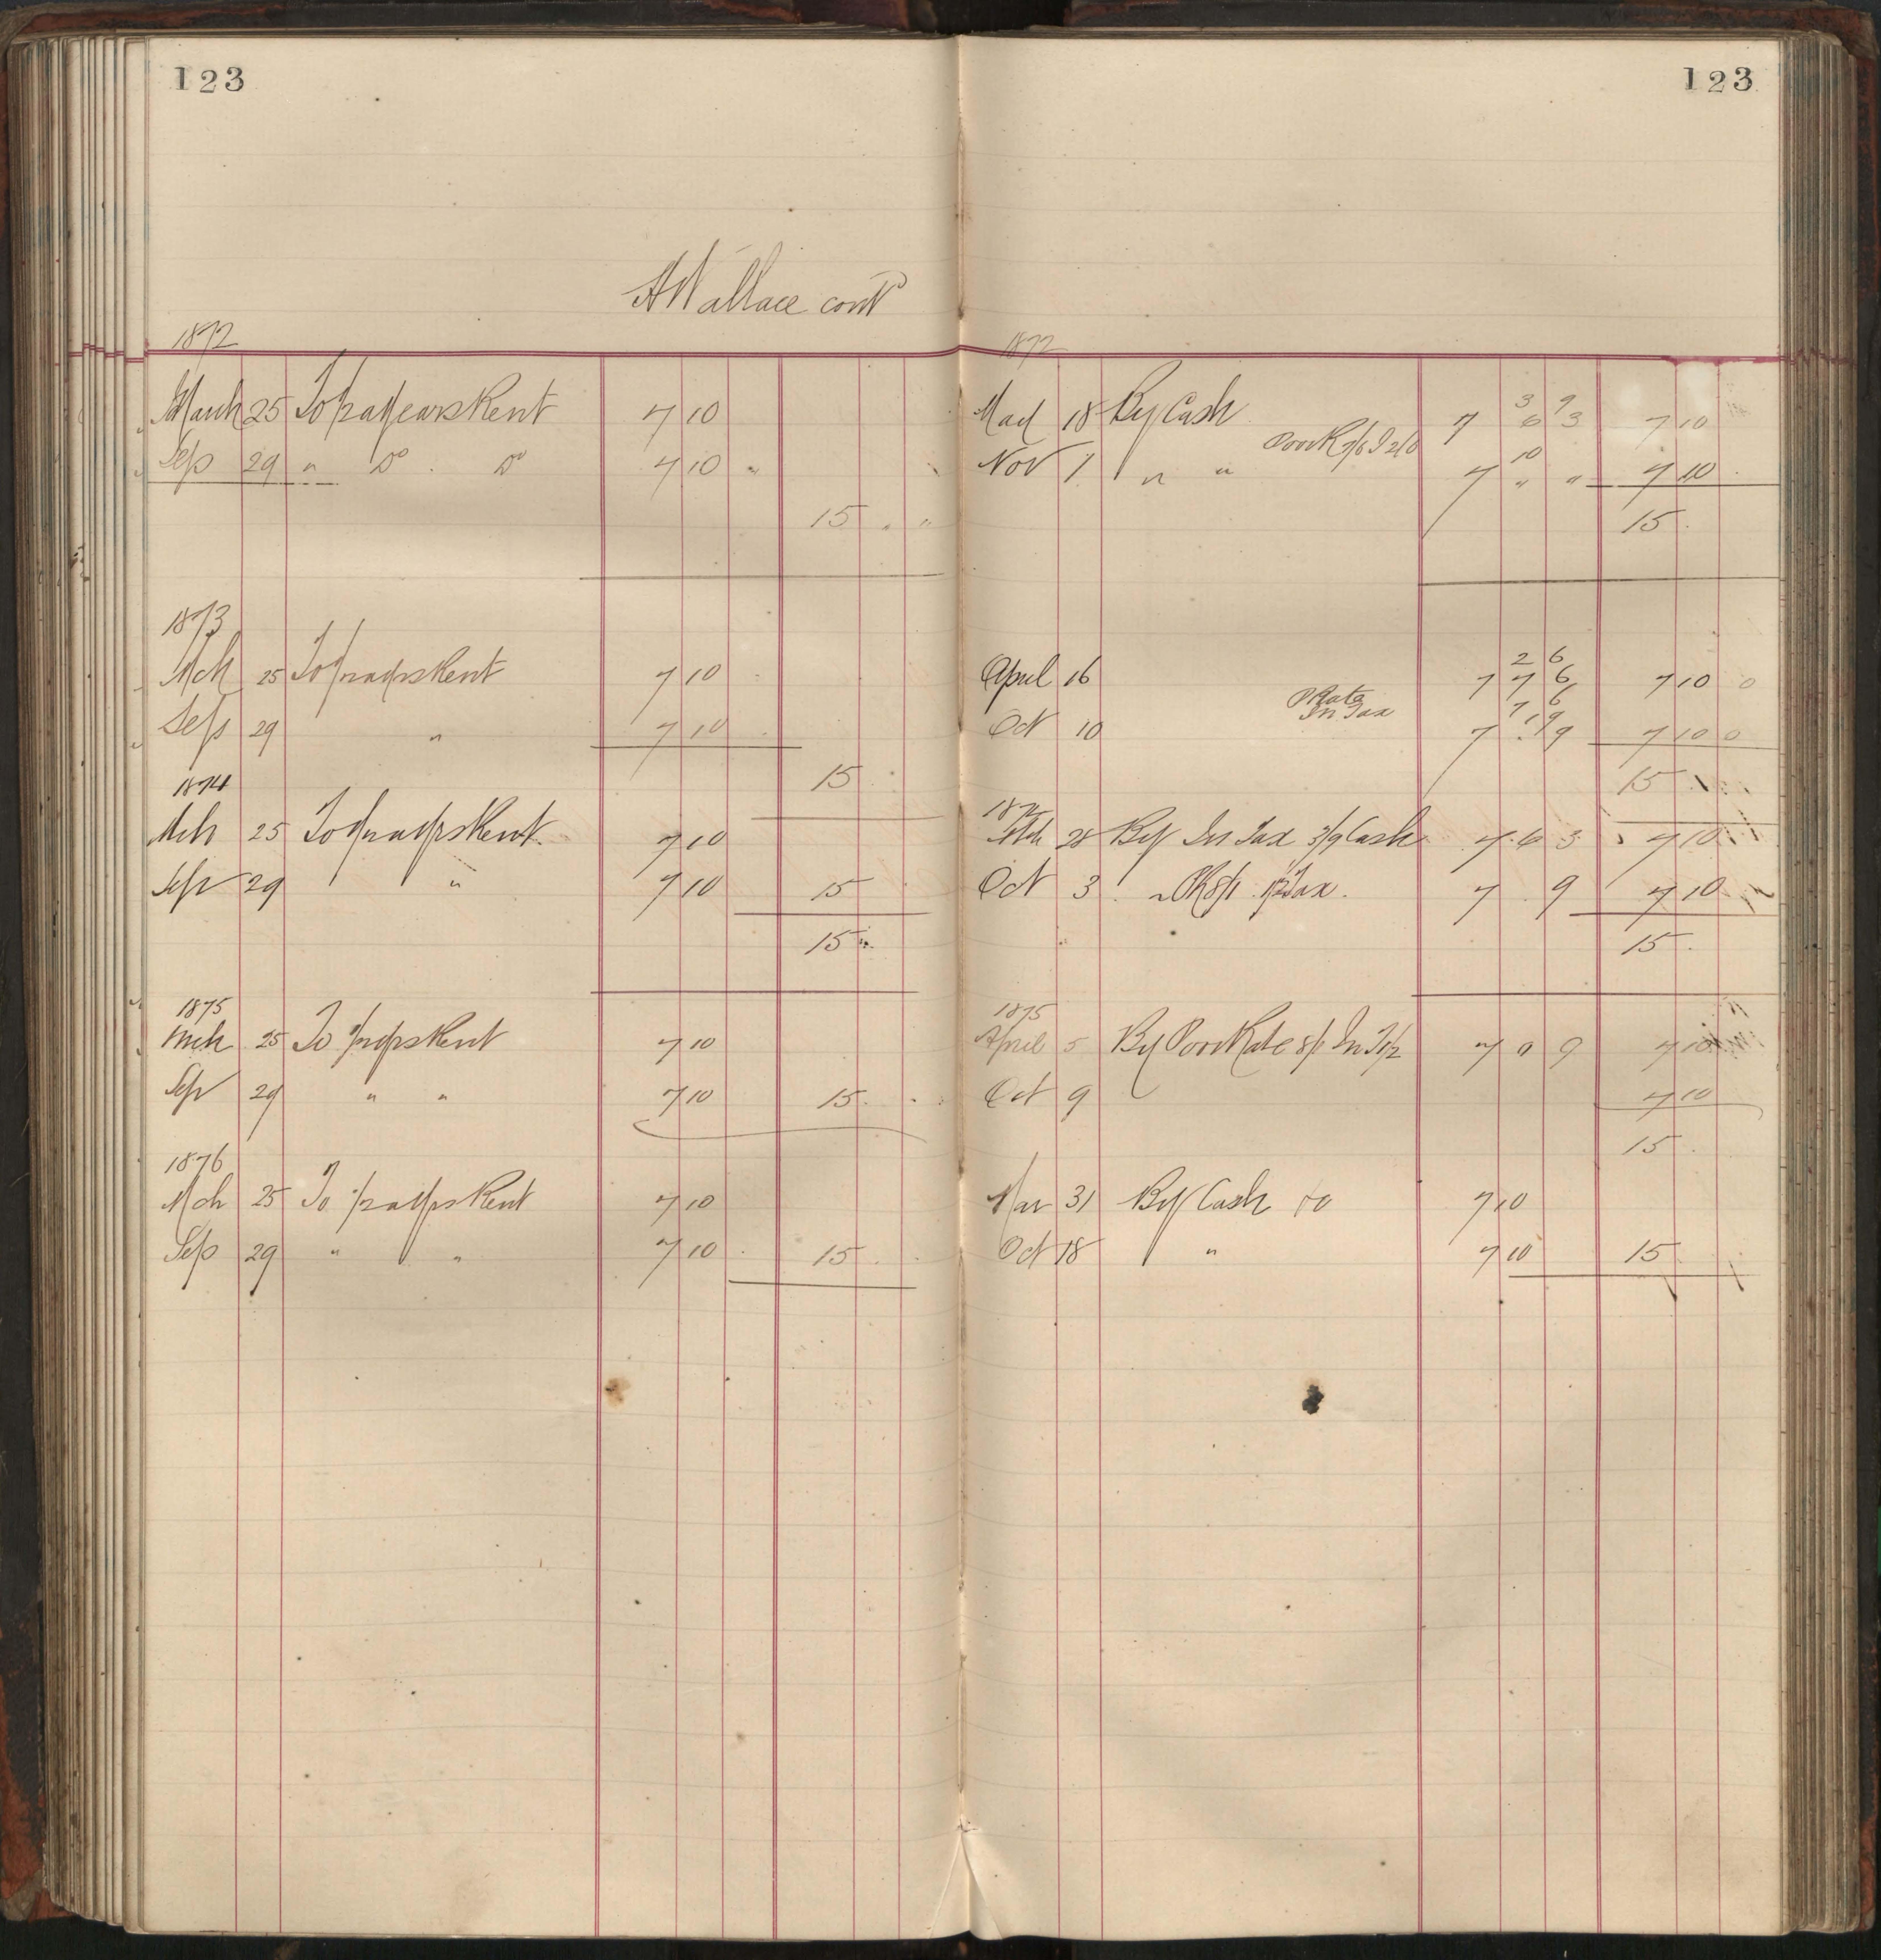 123
A Wallace cont
1872
March 25 To ½ a years Rent 7 10
Sep 29 " Do Do 7 10 "
15 " "
1873
Mch 25 To ½ a yrs Rent 7 10
Sep 29 " 7 10
15
1874
Mch 25 To ½ a yrs Rent 7 10
Sep 29 " 7 10 15
15 "
1875
Mch 25 To ½ yrs Rent 7 10
Sep 29 " " 7 10 15
1876
Mch 25 To ½ a yrs Rent 7 10
Sep 29 " " 7 10 15
123
1872
3 9
18 By Cash 7 6 3 7 10
Poor R
10
Nov 1 " " 7 " " 7 10
15
2 6
April 16 7 7 6 7 10 0
P Rate 7 6
In Tax 1 9
Oct 10 7 . 9 7 10 0
15
Mch 28 By In Tax 3/9 Cash 7 6 3 7 10
Oct 3 " Tax 7 . 9 7 10
15
1875
April 5 By Poor Rate 8/1 In T 7 0 9 7 10
Oct 9 7 10
15
Mar 31 By Cash 7 10
Oct 18 " 7 10 15